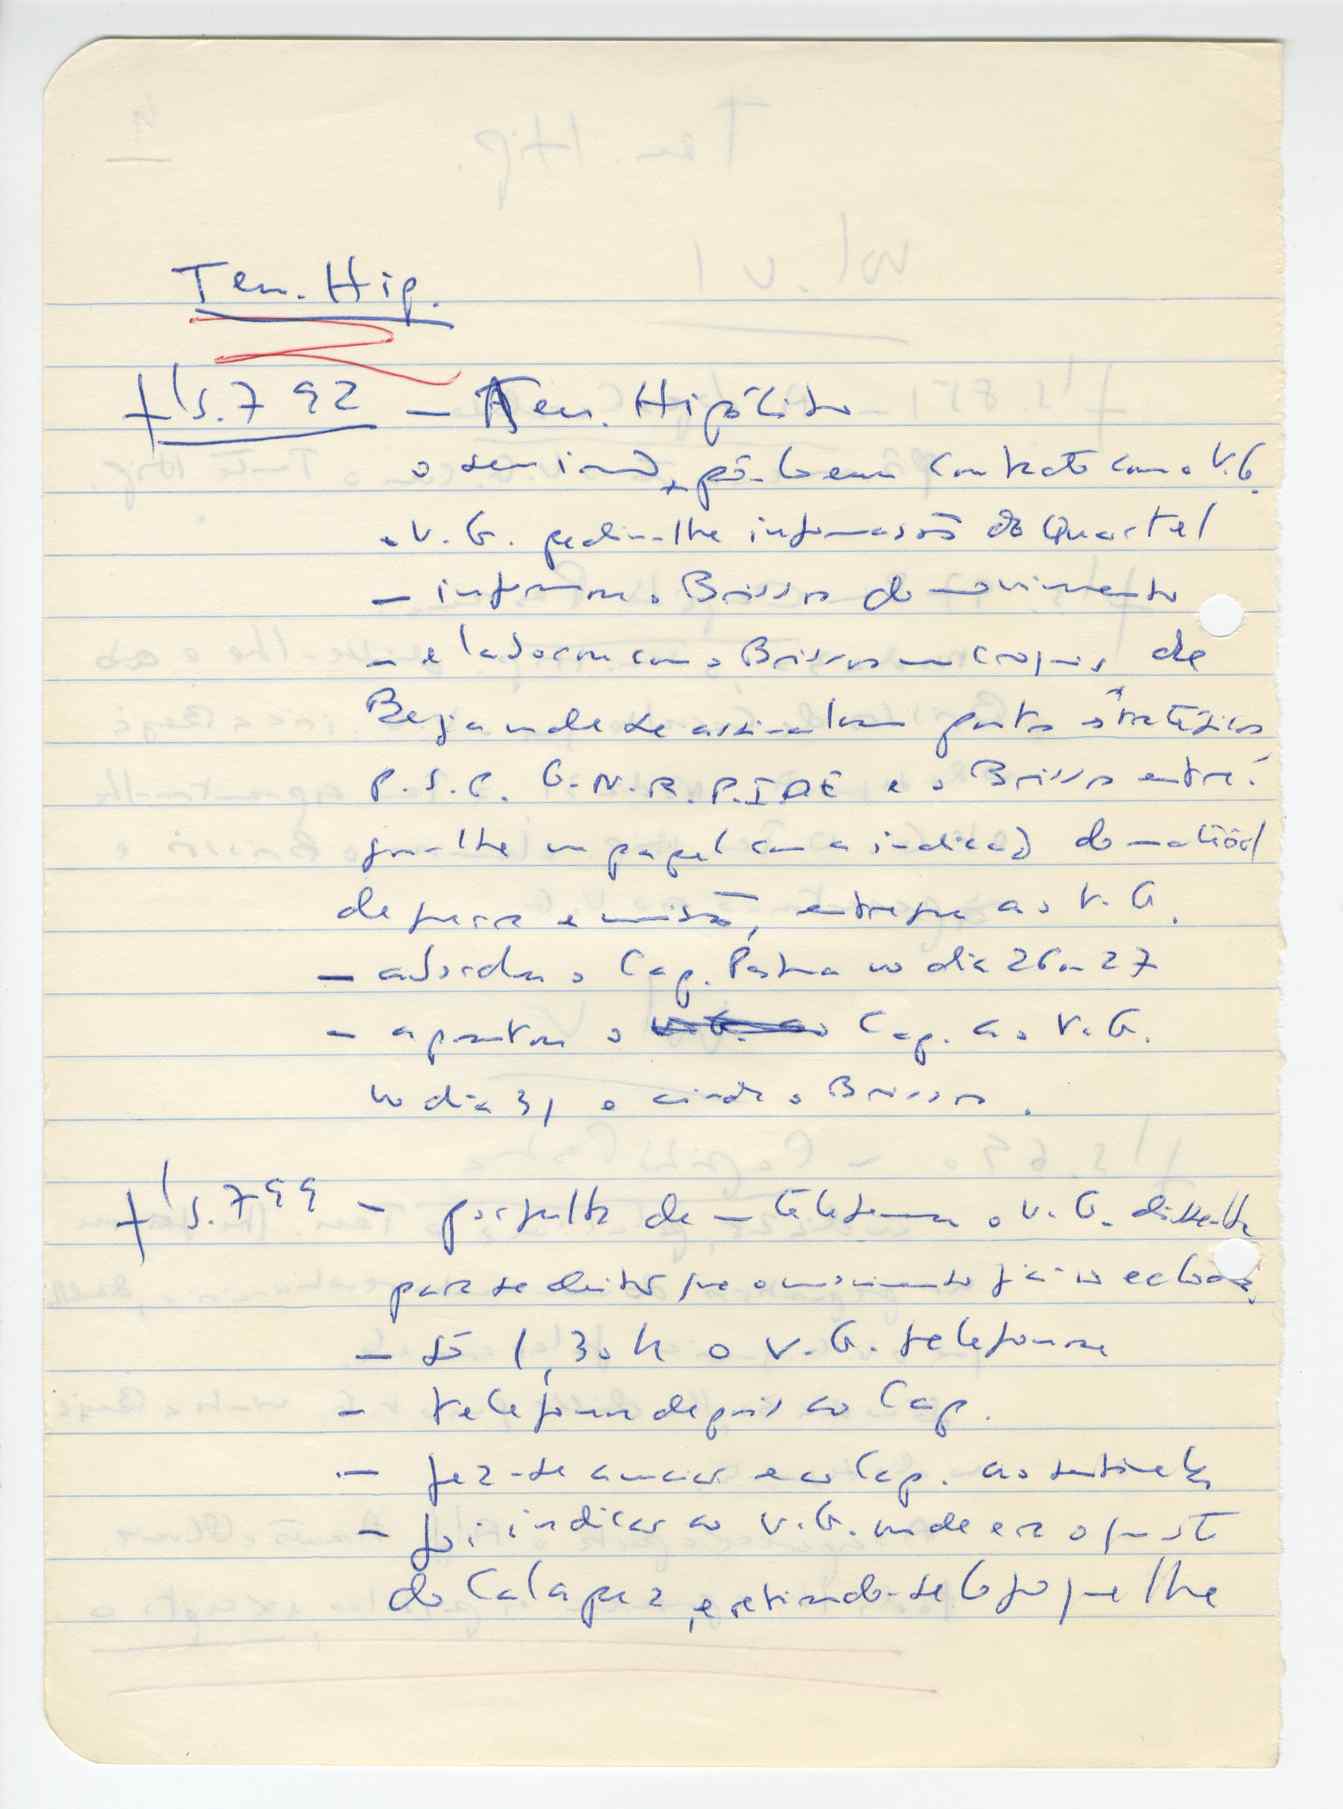 Ten. Hip.
fls. 792 – Ten. Hipólito
o seu irmão pô-lo em contacto com o V.G.
o V.G. pediu-lhe informações do Quartel
– informou o Brissos do movimento
– elaborou com o Brissos um croquis de
Beja onde se assinalam pontos estratégicos
P.S.P. G.N.R. P.I.D.E e o Brissos entre-
gou-lhe um papel com a indicação do material
de guerra e munições, entregue ao V.G.
– abordou o Cap. Pestana no dia 26 ou 27
– apresentou o Cap. ao V.G.
no dia 31 e ainda o Brissos.
fls. 799 – por falta de telefonema o V.G. disse-lhe
para se deitar que o movimento já não eclodia.
– só 1,30 h o V.G. telefonou
– telefonou depois ao Cap.
– fez-se anunciar e ao Cap. ao sentinela
– foi indicar ao V.G. onde era o quarto
do Calapez, e retirando-se logo que lhe